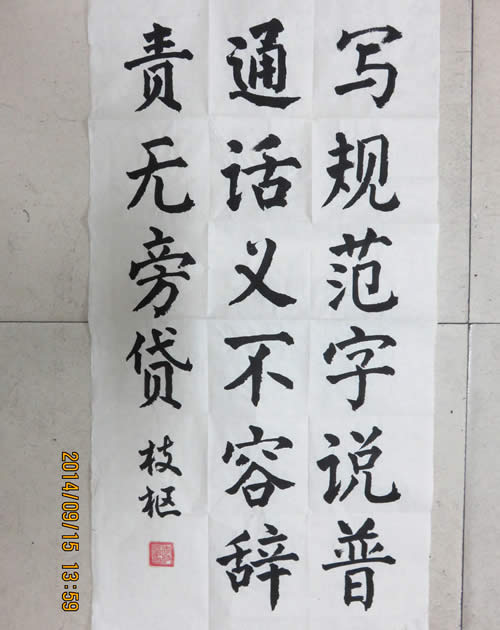 写规范字说普
通话义不容辞
责无旁贷
枝枢
2014/09/15 13:59